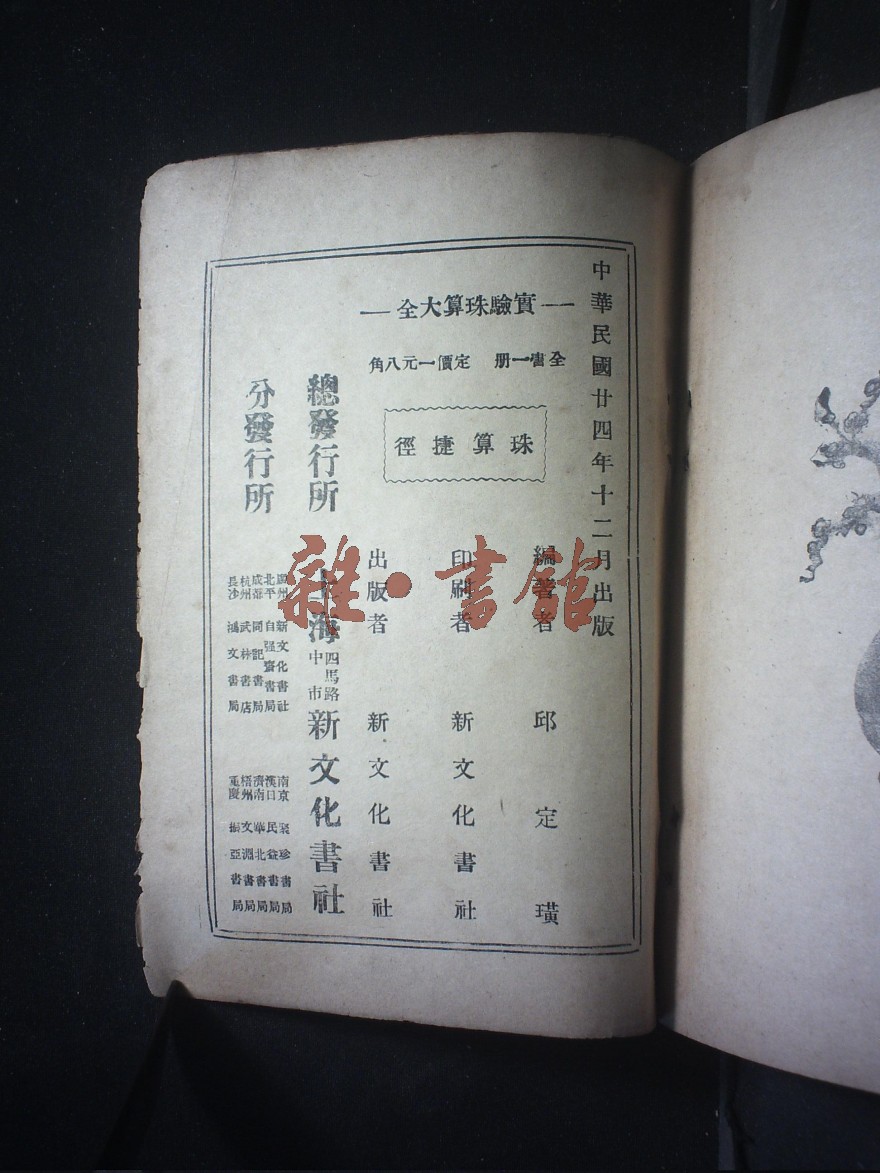 中華民國廿四年十二月出版
—實驗珠算大全—
全書一册 定價一元八角
珠算捷徑
編著者 邱定璜
印刷者 新文化書社
出版者 新文化書社
總發行所 上海四馬路中市 新文化書社
分發行所
廣州 新文化書社
北平 自强齋書局
成都 同記書局
杭州 武林書店
長沙 鴻文書局
南京 聚珍書局
漢口 民益書局
濟南 華北書局
梧州 文淵書局
重慶 振亞書局
雜·書館